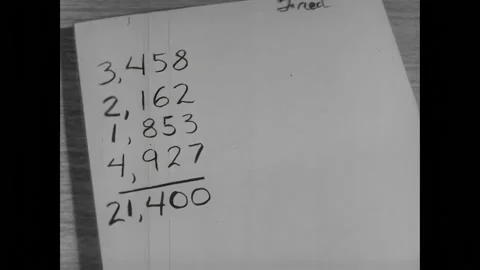 Fred
3,458
2,162
1,853
4,927
21,400